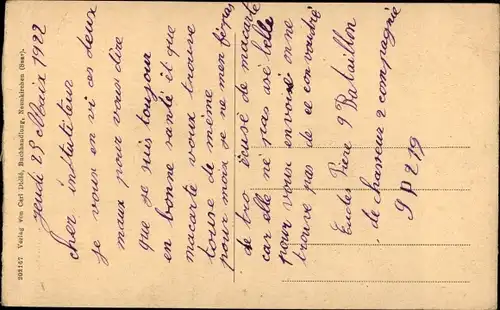 Jeudi 25 Maix 1922
cher instituteur
je vous en vi ces deux
maux pour vous dire
que je suis toujour
en bonne santé et que
macarte vous trouve
touse de même
pour moix je ne men fer pas
de tro écusé de macarte
car elle né pas asé belle
pour vous envoié on ne
trouve pas de ce con voudré
Eudes Piere 9 Bataillon
de chasseur 2 compagnie
S P 219
202167 Verlag von Carl Dölß, Buchhandlung, Neunkirchen (Saar).